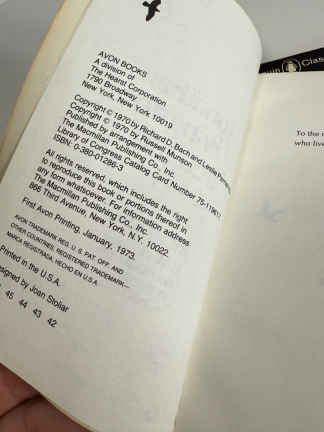 AVON BOOKS
A division of
The Hearst Corporation
1790 Broadway
New York, New York 10019
Copyright © 1970 by Richard D. Bach and Leslie
Copyright © 1970 by Russell Munson
Published by arrangement with
The Macmillan Publishing Co., Inc.
Library of Congress Catalog Card Number 75-119617
ISBN: 0-380-01286-3
All rights reserved, which includes the right
to reproduce this book or portions thereof in
any form whatsoever. For information address
The Macmillan Publishing Co., Inc.
866 Third Avenue, New York, N.Y. 10022.
First Avon Printing, January, 1973.
AVON TRADEMARK REG. U.S. PAT. OFF. AND
OTHER COUNTRIES, REGISTERED TRADEMARK—
MARCA REGISTRADA, HECHO EN U.S.A.
Printed in the U.S.A.
signed by Joan Stoliar
45 44 43 42
To the
who live
Clas